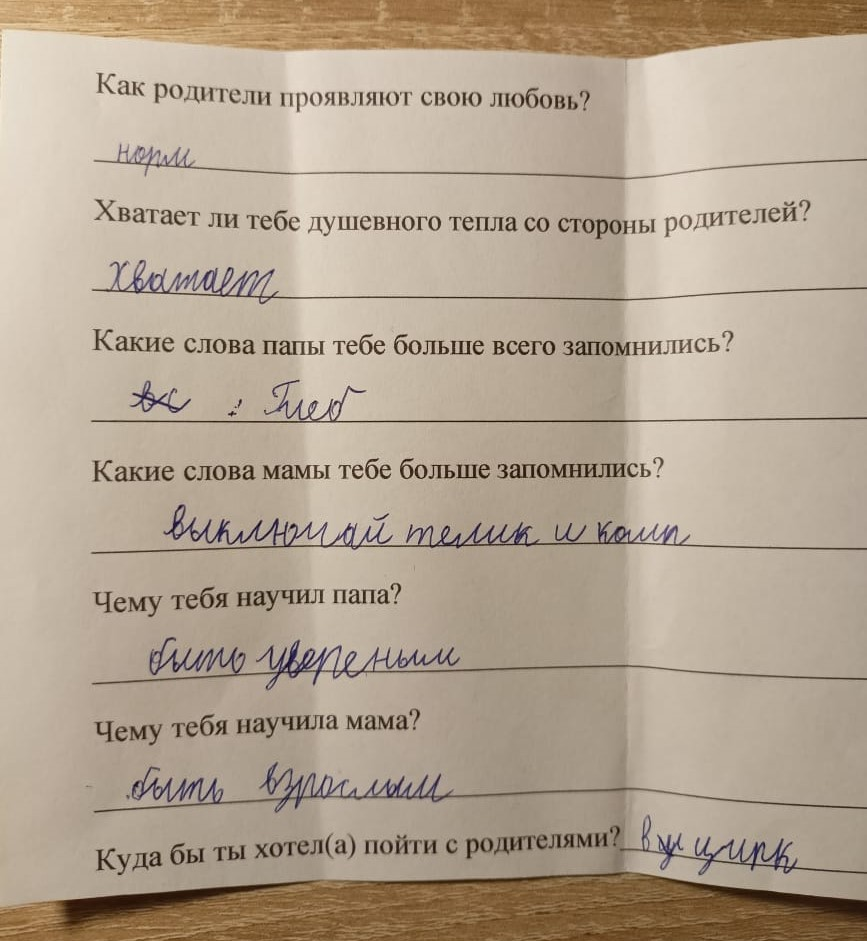 Как родители проявляют свою любовь?
норм
Хватает ли тебе душевного тепла со стороны родителей?
Хватает
Какие слова папы тебе больше всего запомнились?
: Глеб
Какие слова мамы тебе больше запомнились?
выключай телик и комп
Чему тебя научил папа?
быть увереным
Чему тебя научила мама?
быть взрослым
Куда бы ты хотел(а) пойти с родителями? в цирк